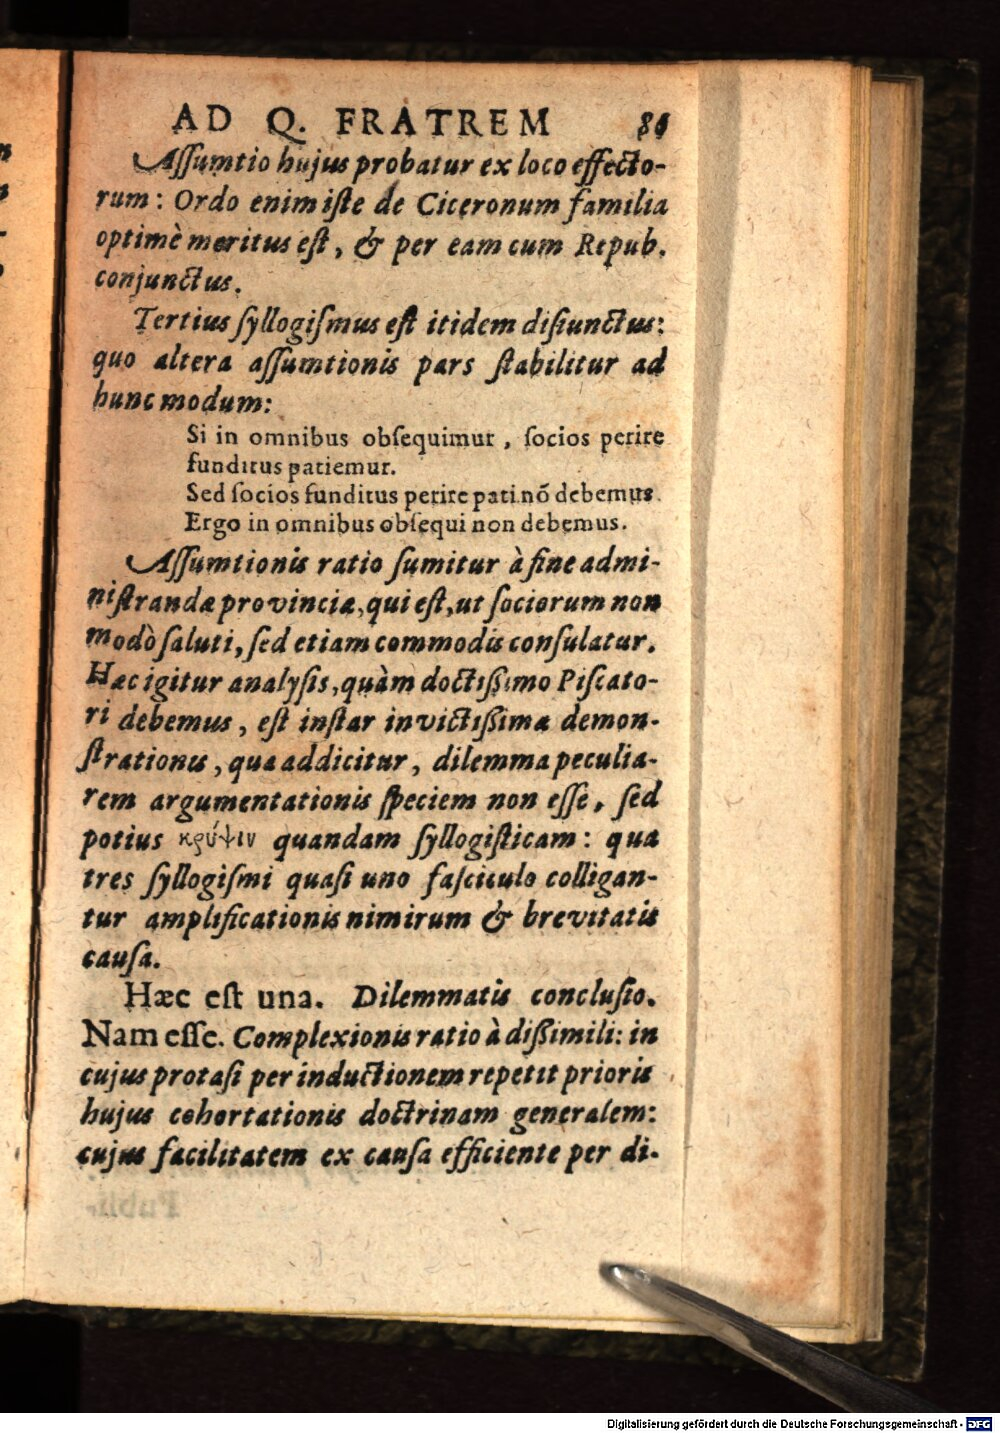 AD Q. FRATREM 86
Aſſumtio hujus probatur ex loco effecto-
rum: Ordo enim iſte de Ciceronum familia
optimè meritus eſt, & per eam cum Repub.
conjunctus.
Tertius ſyllogiſmus eſt itidem diſiunctus:
quo altera aſſumtionis pars ſtabilitur ad
hunc modum:
Si in omnibus obſequimur, ſocios perire
funditus patiemur.
Sed ſocios funditus perire pati nõ debemus.
Ergo in omnibus obſequi non debemus.
Aſſumtionis ratio ſumitur à fine admi-
niſtrandæ provinciæ, qui eſt, ut ſociorum non
modò ſaluti, ſed etiam commodis conſulatur.
Hæc igitur analyſis, quàm doctißimo Piſcato-
ri debemus, eſt inſtar invictißimæ demon-
ſtrationis, qua addicitur, dilemma peculia-
rem argumentationis ſpeciem non eſſe, ſed
potius κρύψιν quandam ſyllogiſticam: qua
tres ſyllogiſmi quaſi uno faſciculo colligan-
tur amplificationis nimirum & brevitatis
cauſa.
Hæc eſt una. Dilemmatis concluſio.
Nam eſſe. Complexionis ratio à dißimili: in
cujus protaſi per inductionem repetit prioris
hujus cohortationis doctrinam generalem:
cujus facilitatem ex cauſa efficiente per di-
Digitalisierung gefördert durch die Deutsche Forschungsgemeinschaft - DFG